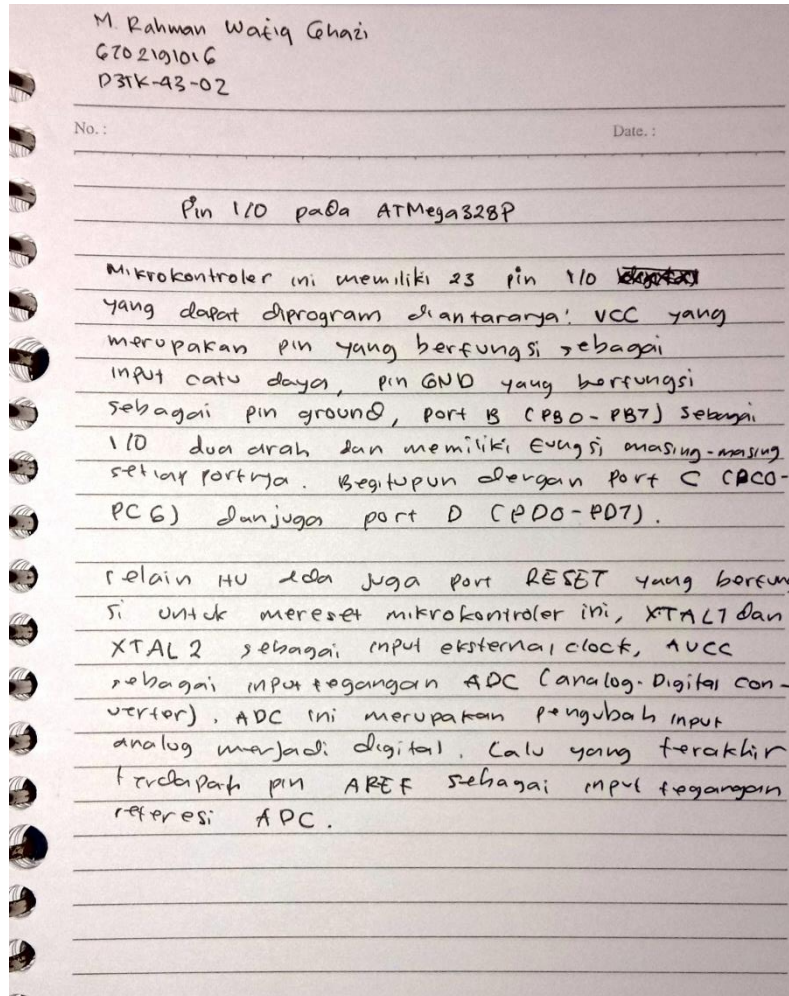 M. Rahman Wafiq Ghazi
6702191016
D3TK-43-02
No. :
Date. :
Pin I/O pada ATMega328P
Mikrokontroler ini memiliki 23 pin I/O
yang dapat diprogram diantaranya: VCC yang
merupakan pin yang berfungsi sebagai
input catu daya, pin GND yang berfungsi
sebagai pin ground, port B (PB0-PB7) sebagai
I/O dua arah dan memiliki fungsi masing-masing
setiap portnya. Begitupun dengan port C (PC0-
PC6) dan juga port D (PD0-PD7).
selain itu ada juga port RESET yang berfung
si untuk mereset mikrokontroler ini, XTAL1 dan
XTAL2 sebagai input eksternal clock, AVCC
sebagai input tegangan ADC (analog-Digital con-
verter). ADC ini merupakan pengubah input
analog menjadi digital. Lalu yang terakhir
terdapat pin AREF sebagai input tegangan
referesi ADC.